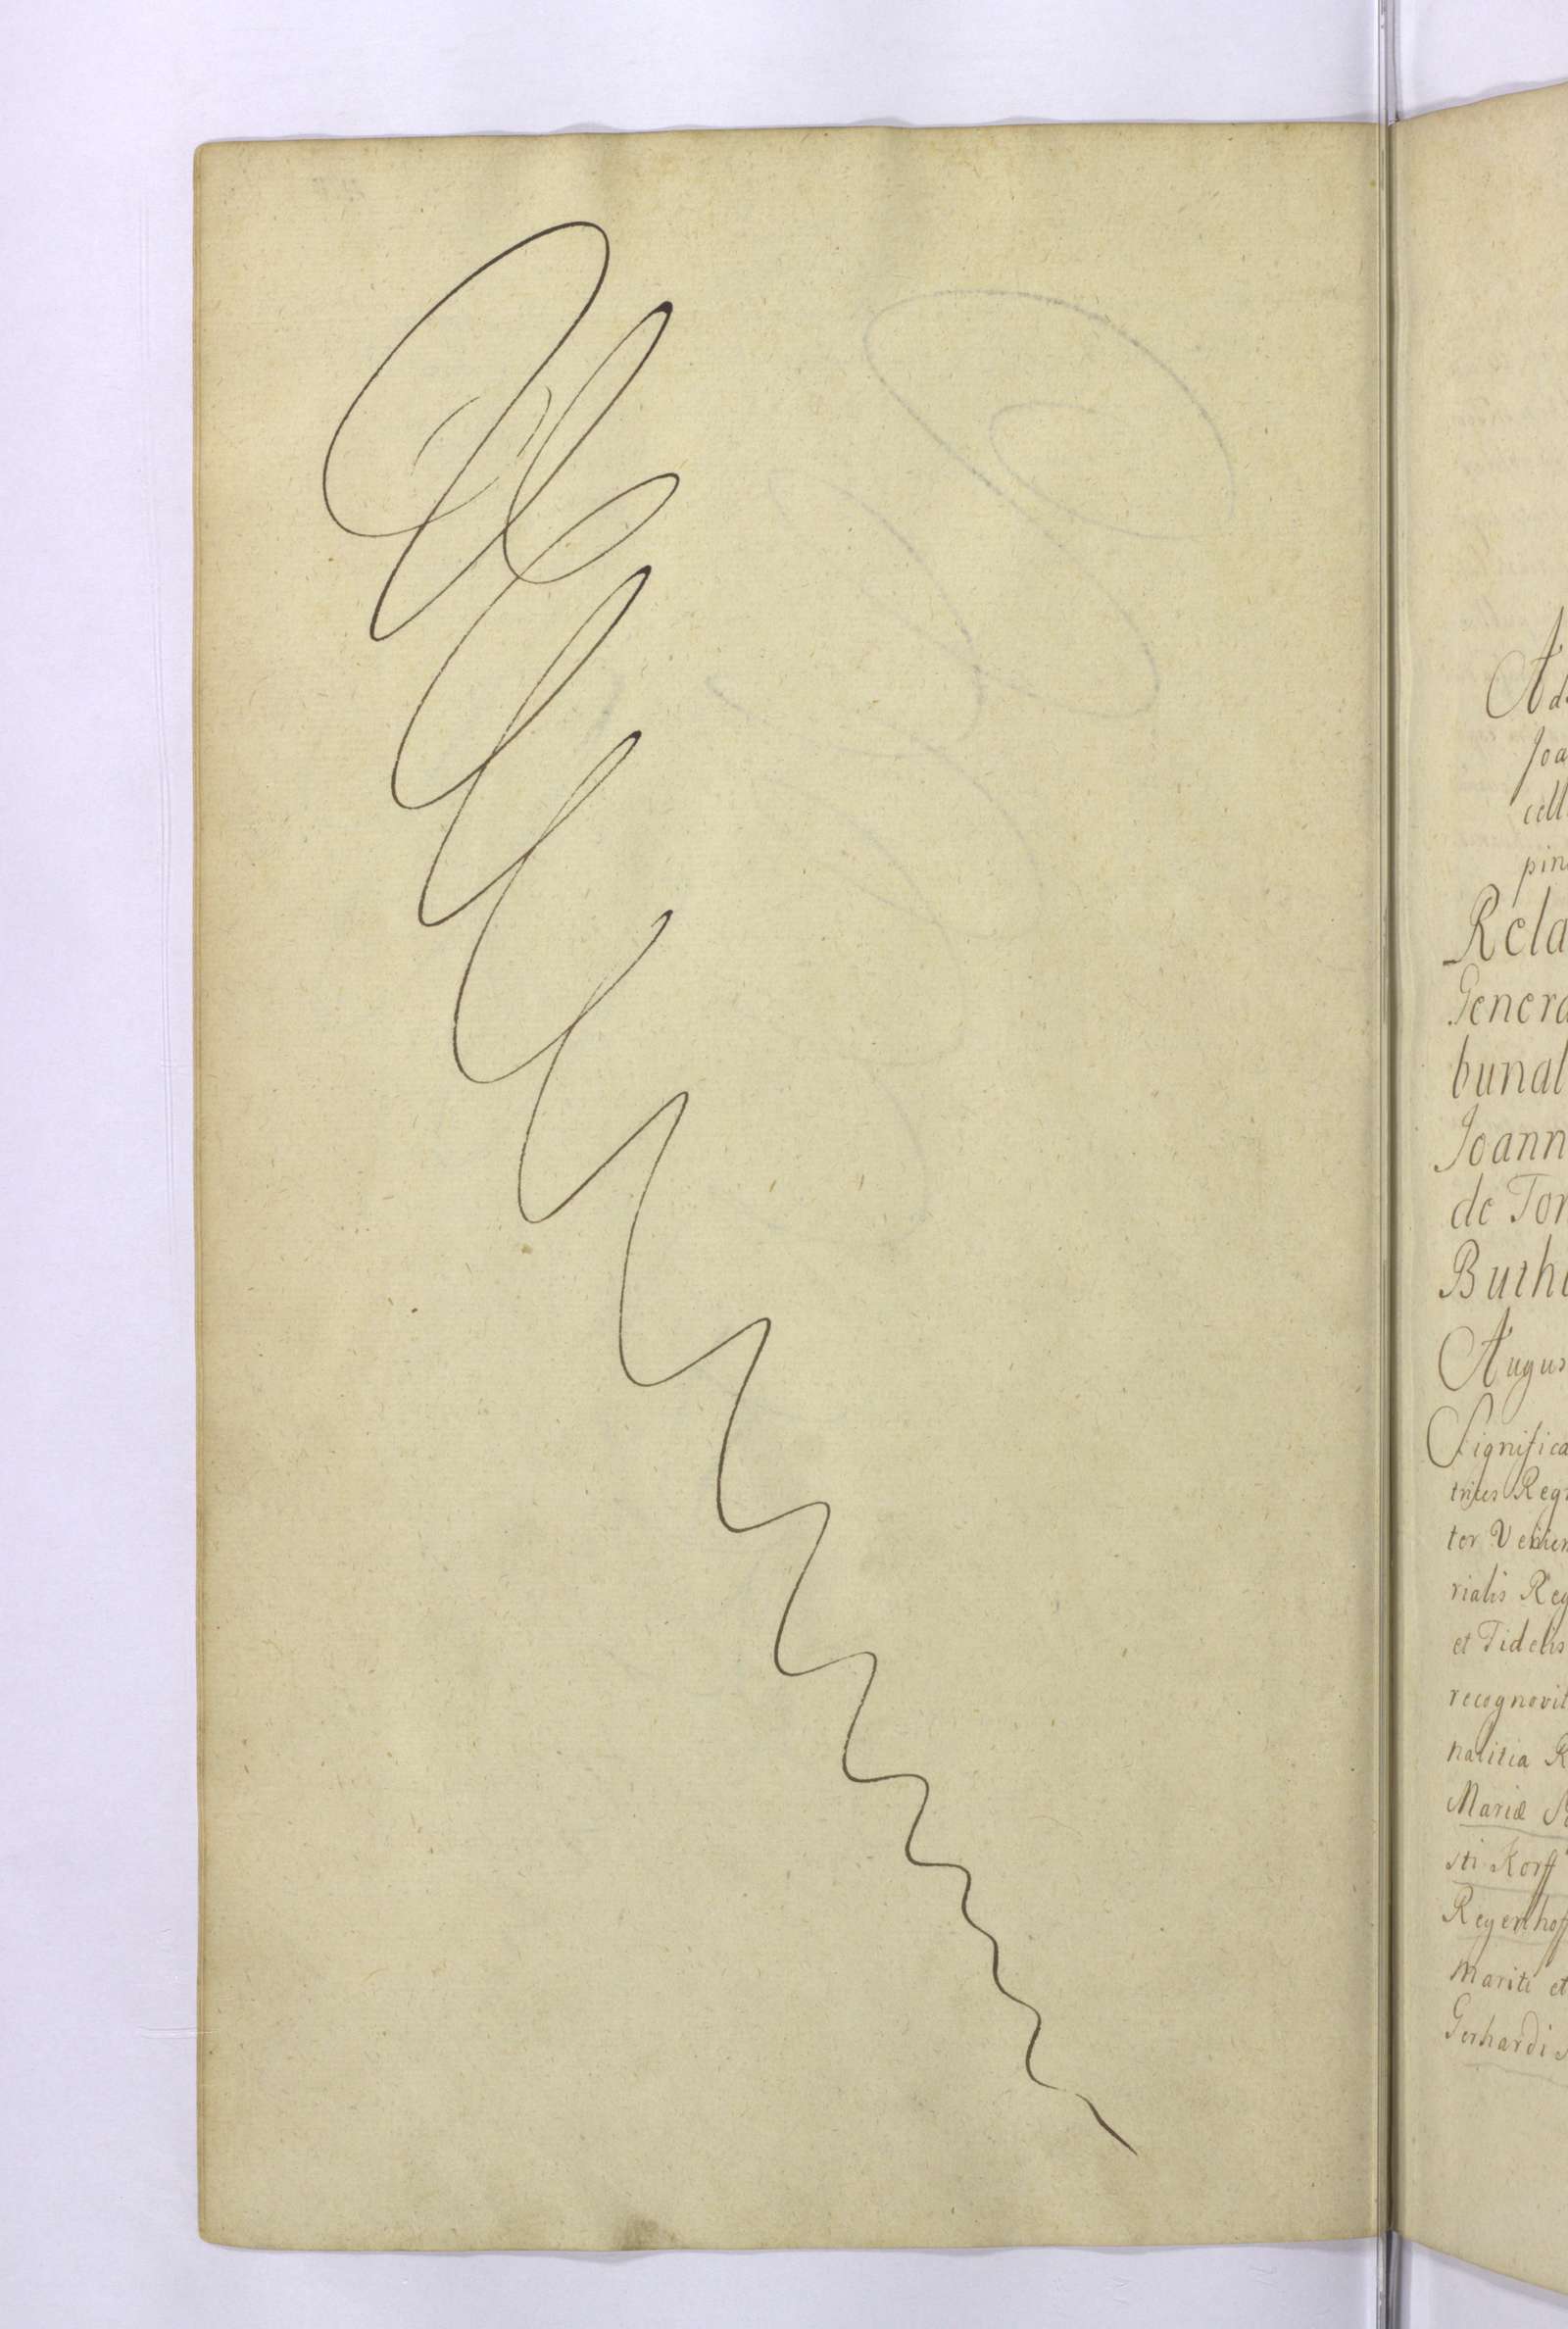 Ad
Joa
cell
pin
Rela
Genera
bunal
Joann
de Tor
Buth
Augus
Significa
trices Reg
tor Venien
rialis Reg
et Fidelis
recognovit
nalitia R
Mariæ S
sti Korff
Reyenhof
Mariti et
Gerhardi